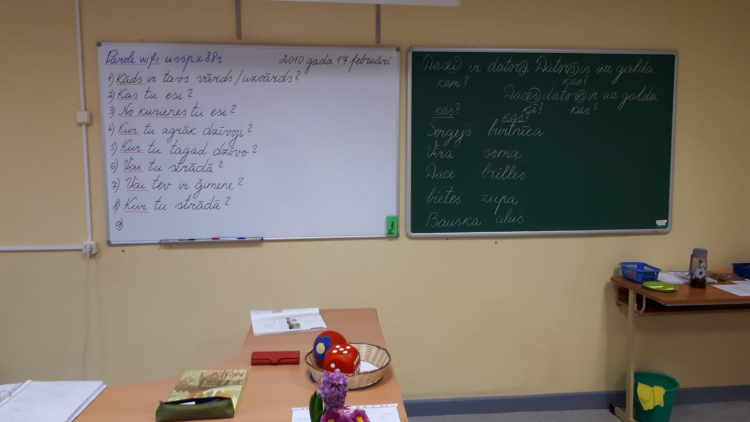 Parole wifi usspx88r 2010 gada 17 februāri
1) Kāds ir tavs vārds/uzvārds?
2) Kas tu esi?
3) No kurienes tu esi?
4) Kur tu agrāk dzīvoji?
5) Kur tu tagad dzīvo?
6) Vai tu strādā?
7) Vai tev ir ģimene?
8) Kur tu strādā?
9)
Dacei ir dators. Dators ir uz galda
kam? kas?
Daces dators ir uz galda
kas? kā? kas?
kas?
Sergejs burtnīca
Vīra soma
Dace brilles
bietes zupa
Bauska alus